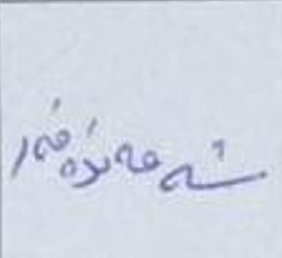 شەمەندەفەر